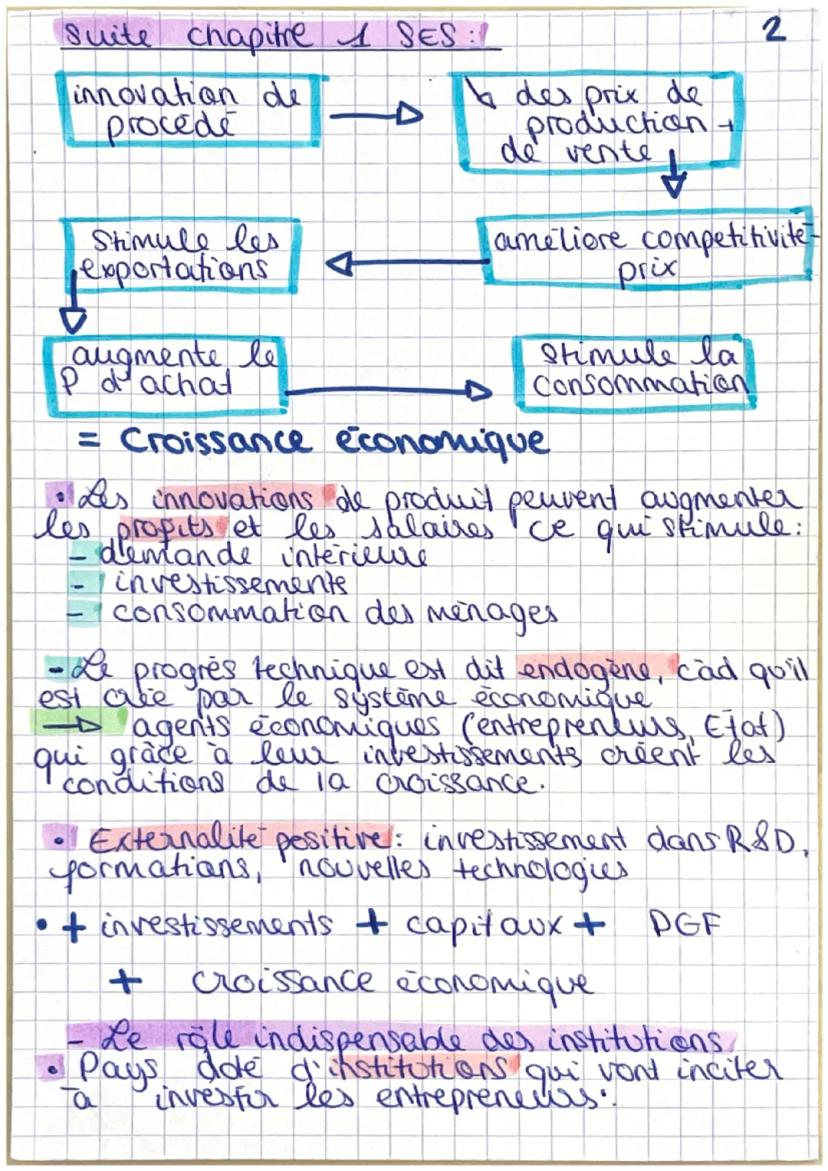 suite chapitre 1 SES : 2
innovation de
procédé
→
↘ des prix de
production +
de vente
améliore compétitivité-
prix
Stimule les
exportations
augmente le
P d'achat
Stimule la
consommation
= Croissance économique
• Les innovations de produit peuvent augmenter
les profits et les salaires ce qui stimule :
- demande intérieure
- investissements
- consommation des ménages
- Le progrès technique est dit endogène, càd qu'il
est crée par le système économique
→ agents économiques (entrepreneurs, État)
qui grâce à leur investissements créent les
conditions de la croissance.
• Externalité positive : investissement dans R&D,
formations, nouvelles technologies
• + investissements + capitaux + PGF
+ croissance économique
- Le rôle indispensable des institutions
• Pays doté d'institutions qui vont inciter
à investir les entrepreneurs.